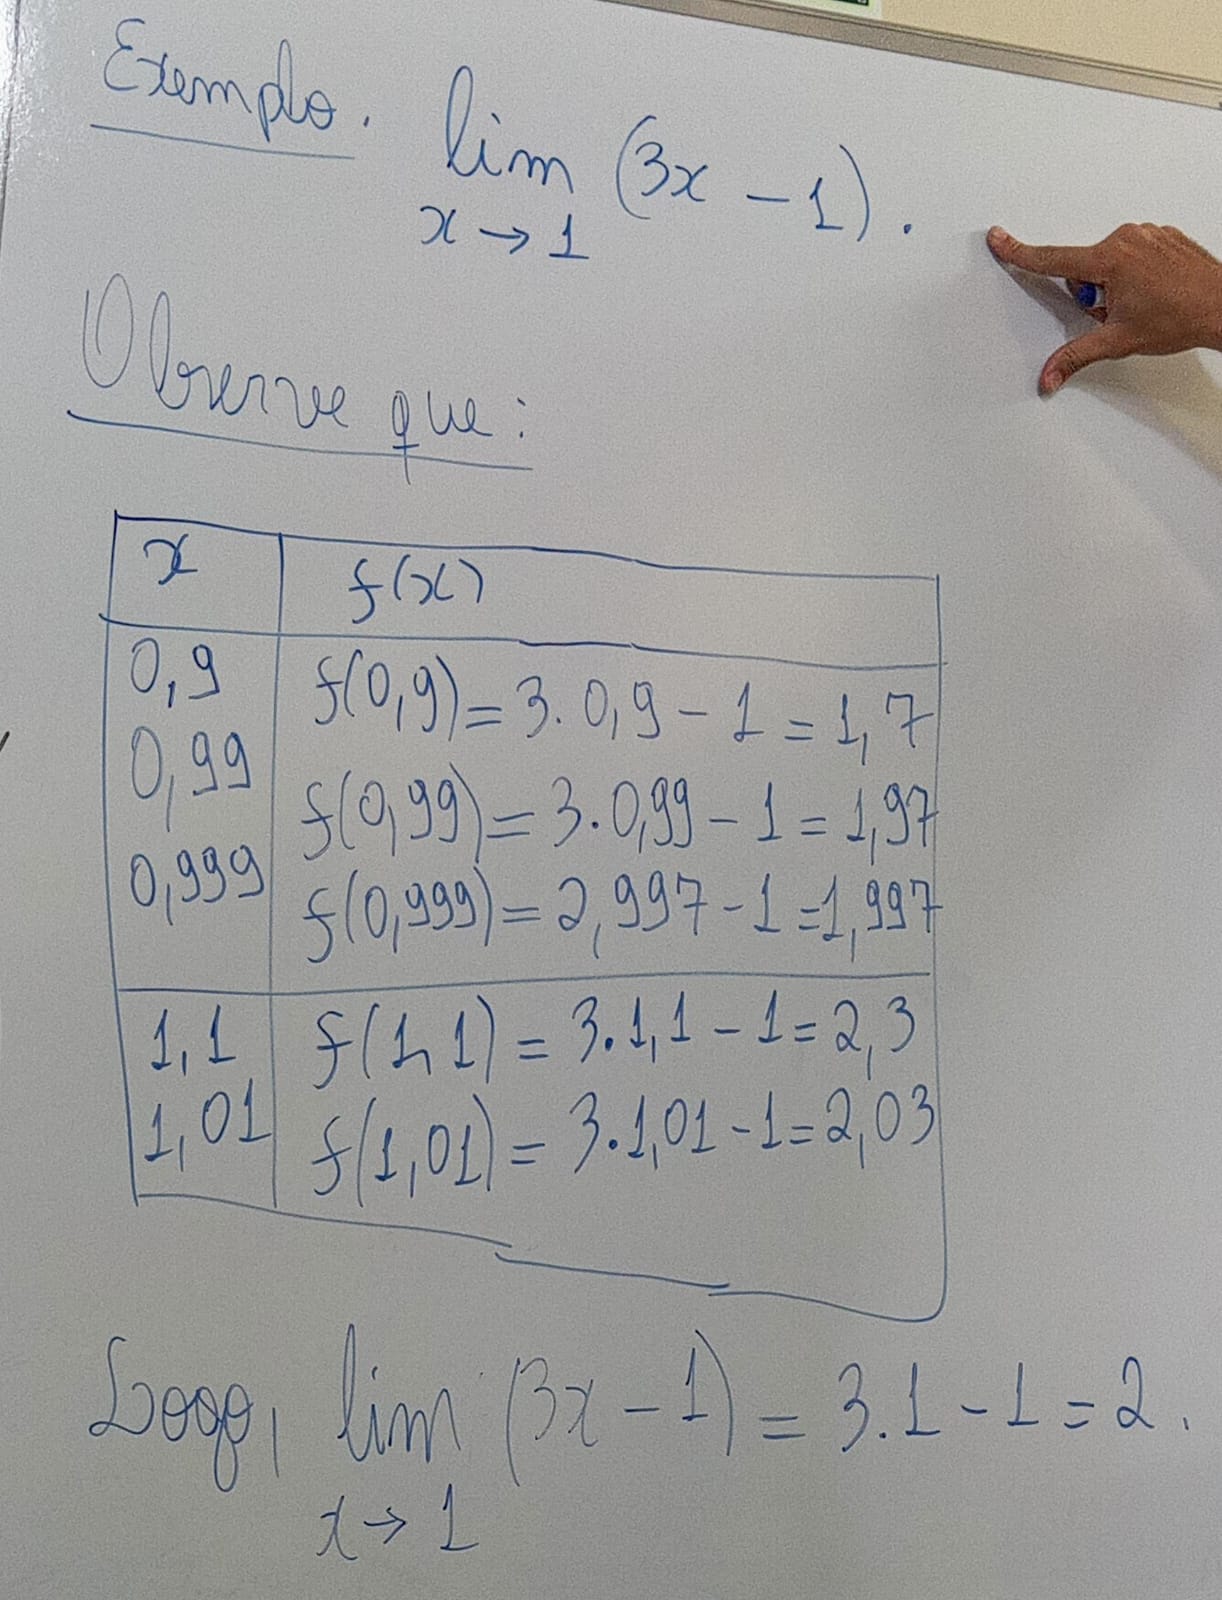 Exemplo. lim (3x - 1).
x → 1
Observe que:
x f(x)
0,9 f(0,9) = 3.0,9 - 1 = 1,7
0,99 f(0,99) = 3.0,99 - 1 = 1,97
0,999 f(0,999) = 2,997 - 1 = 1,997
1,1 f(1,1) = 3.1,1 - 1 = 2,3
1,01 f(1,01) = 3.1,01 - 1 = 2,03
Logo, lim (3x - 1) = 3.1 - 1 = 2.
x → 1